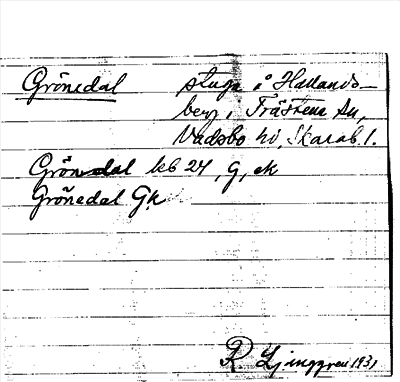 Grönedal stuga i Hallands-
berg, Trästena sn,
Vadsbo hd, Skarab. l.
Grönedal kb 24, G, ek
Grönedal Gk
R. Ljunggren 1931